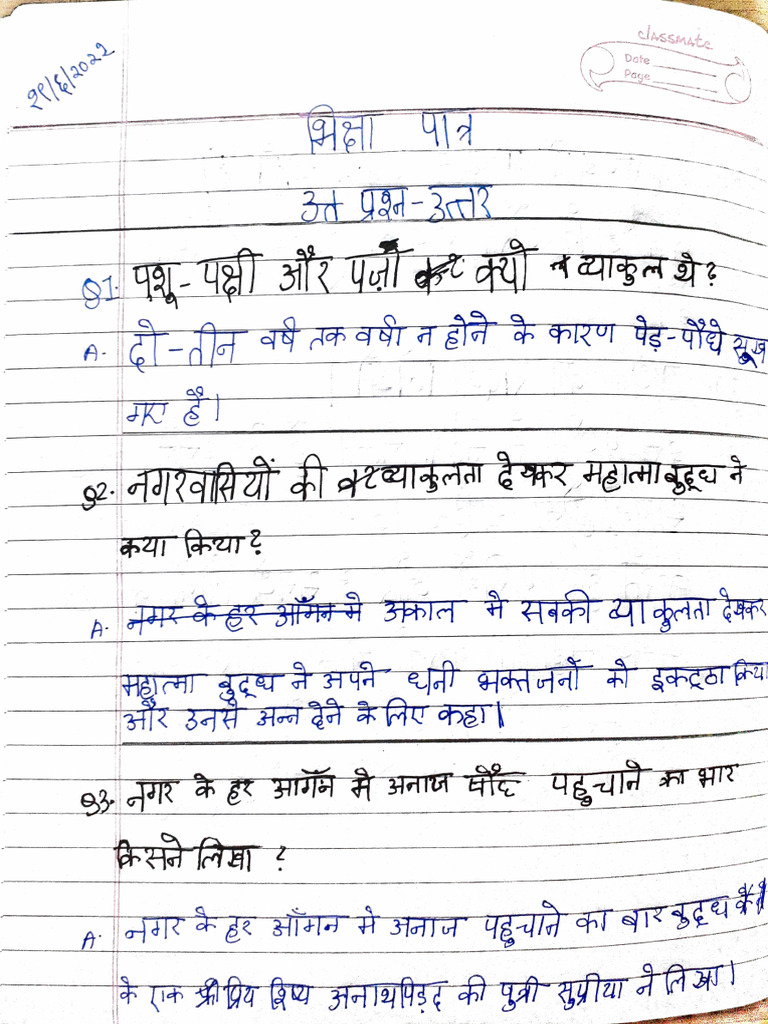 classmate
Date
Page
२९/६/२०२२
भिक्षा पात्र
प्रश्न-उत्तर
Q1. पशू-पक्षी और क्यों व्याकुल थे?
A. दो-तीन वर्ष तक वर्षा न होने के कारण पेड़-पौधे सूख
गए है।
Q2. नगरवासियों की व्याकुलता देखकर महात्मा बुद्ध ने
क्या किया?
A. नगर के हर आँगन मे अकाल मे सबकी व्याकुलता देखकर
महात्मा बुद्ध ने अपने धनी भक्तजनों को इकट्ठा किया
और उनसे अन्न देने के लिए कहा।
Q3. नगर के हर मे अनाज पहुचाने का भार
किसने लिखा ?
A. नगर के हर आँगन मे अनाज पहुचाने का बार बुद्ध
के एक प्रिय शिष्य अनाथपिड़द की पुत्री सुप्रीया ने लिखा।